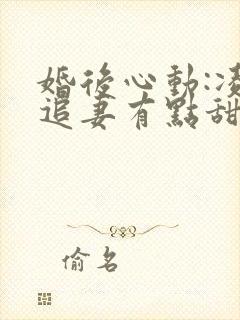 婚後心動:
追妻有點甜
偷名